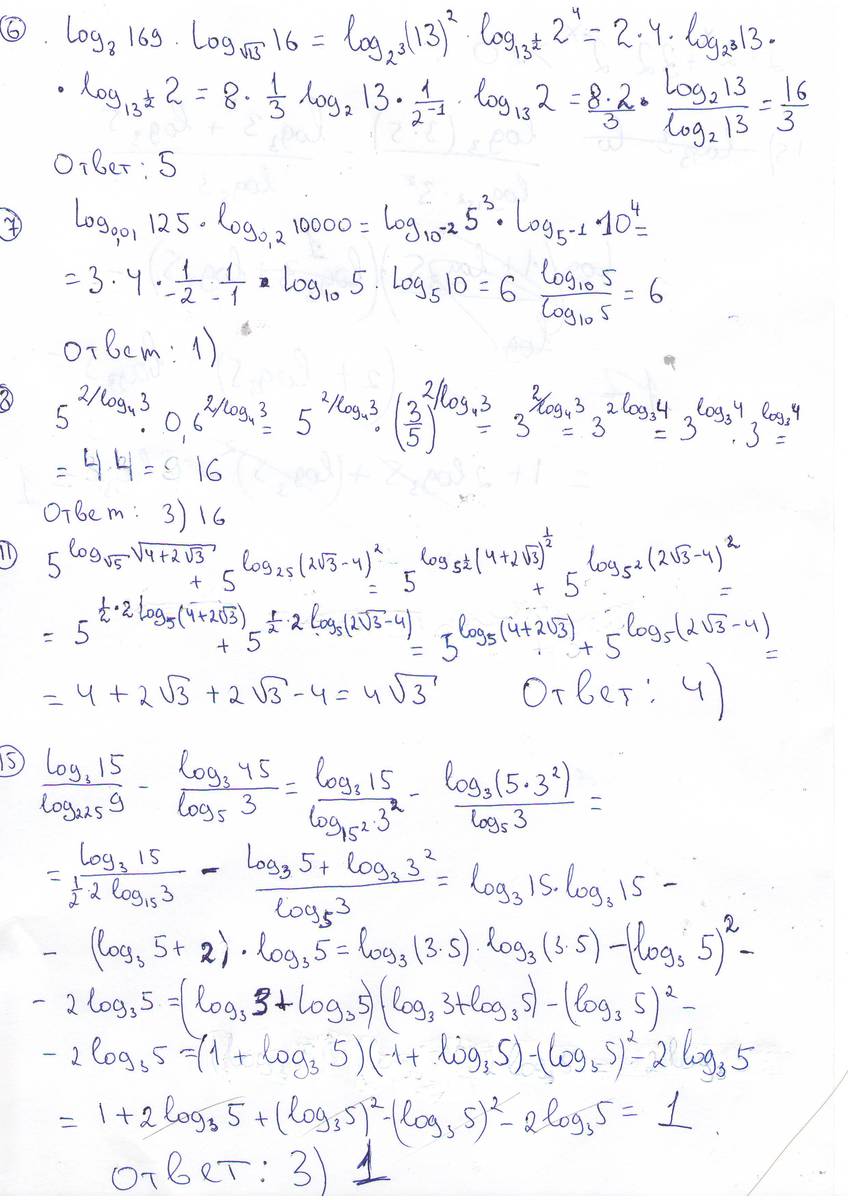 6 . log₈ 169 · log_√13 16 = log_2³ (13)² · log_13^½ 2⁴ = 2 · 4 · log_2³ 13 ·
· log_13^½ 2 = 8 · 1/3 log₂ 13 · 1/2⁻¹ · log₁₃ 2 = 8·2/3 · log₂13/log₂13 = 16/3
Ответ: 5
7 log₀,₀₁ 125 · log₀,₂ 10000 = log_10⁻² 5³ · log_5⁻¹ · 10⁴ =
= 3 · 4 · 1/-2 · 1/-1 · log₁₀ 5 · log₅ 10 = 6 log₁₀5/log₁₀5 = 6
Ответ: 1)
8 5^(2/log₄3) · 0,6^(2/log₄3) = 5^(2/log₄3) · (3/5)^(2/log₄3) = 3^(2/log₄3) = 3^(2log₃4) = 3^(log₃4) · 3^(log₃4) =
= 4·4 = 16
Ответ: 3) 16
11 5^(log_√5 √(4+2√3)) + 5^(log₂₅(2√3-4)²) = 5^(log_5^½ (4+2√3)^½) + 5^(log_5² (2√3-4)²) =
= 5^(½·2log₅(4+2√3)) + 5^(½·2log₅(2√3-4)) = 5^(log₅(4+2√3)) + 5^(log₅(2√3-4)) =
= 4 + 2√3 + 2√3 - 4 = 4√3 Ответ: 4)
15 log₃15/log₂₂₅9 - log₃45/log₅3 = log₃15/log_15²·3² - log₃(5·3²)/log₅3 =
= log₃15/(½·2 log₁₅3) - (log₃5 + log₃3²)/log₅3 = log₃15 · log₃15 -
- (log₃5 + 2) · log₃5 = log₃(3·5) · log₃(3·5) - (log₃5)² -
- 2log₃5 = (log₃3 + log₃5)(log₃3 + log₃5) - (log₃5)² -
- 2log₃5 = (1 + log₃5)(1 + log₃5) - (log₃5)² - 2log₃5
= 1 + 2log₃5 + (log₃5)² - (log₃5)² - 2log₃5 = 1
Ответ: 3) 1